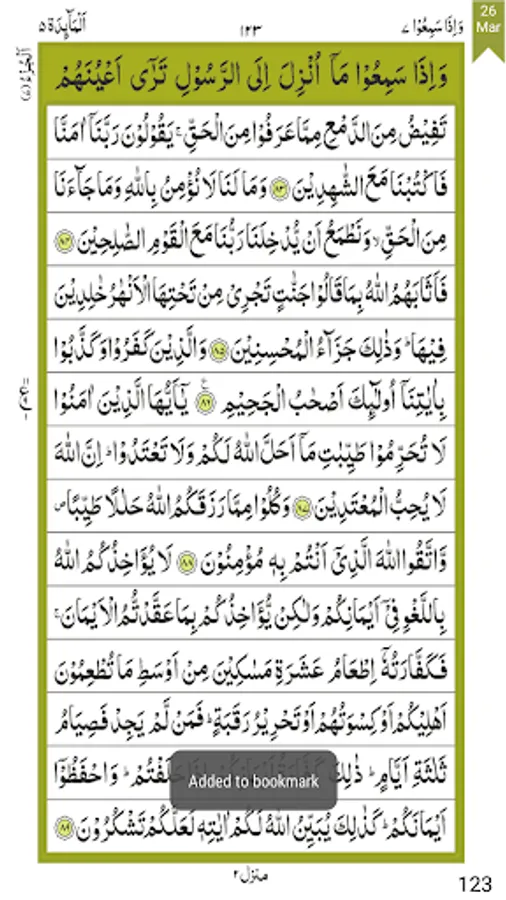 26
Mar
اَلْمَآئِدَة ٥
١٢٣
وَاِذَا سَمِعُوْا ٧
وَاِذَا سَمِعُوْا مَاۤ اُنْزِلَ اِلَى الرَّسُوْلِ تَرٰٓى اَعْيُنَهُمْ
تَفِيْضُ مِنَ الدَّمْعِ مِمَّا عَرَفُوْا مِنَ الْحَقِّ ۚ يَقُوْلُوْنَ رَبَّنَاۤ اٰمَنَّا
فَاكْتُبْنَا مَعَ الشّٰهِدِيْنَ ﴿٨٣﴾ وَمَا لَنَا لَا نُؤْمِنُ بِاللّٰهِ وَمَا جَآءَنَا
مِنَ الْحَقِّ ۙ وَنَطْمَعُ اَنْ يُّدْخِلَنَا رَبُّنَا مَعَ الْقَوْمِ الصّٰلِحِيْنَ ﴿٨٤﴾
فَاَثَابَهُمُ اللّٰهُ بِمَا قَالُوْا جَنّٰتٍ تَجْرِيْ مِنْ تَحْتِهَا الْاَنْهٰرُ خٰلِدِيْنَ
فِيْهَا ؕ وَذٰلِكَ جَزَآءُ الْمُحْسِنِيْنَ ﴿٨٥﴾ وَالَّذِيْنَ كَفَرُوْا وَكَذَّبُوْا
بِاٰيٰتِنَاۤ اُولٰٓئِكَ اَصْحٰبُ الْجَحِيْمِ ﴿٨٦﴾ يٰۤاَيُّهَا الَّذِيْنَ اٰمَنُوْا
لَا تُحَرِّمُوْا طَيِّبٰتِ مَاۤ اَحَلَّ اللّٰهُ لَكُمْ وَلَا تَعْتَدُوْا ؕ اِنَّ اللّٰهَ
لَا يُحِبُّ الْمُعْتَدِيْنَ ﴿٨٧﴾ وَكُلُوْا مِمَّا رَزَقَكُمُ اللّٰهُ حَلٰلًا طَيِّبًا ۪
وَّاتَّقُوا اللّٰهَ الَّذِيْۤ اَنْتُمْ بِهٖ مُؤْمِنُوْنَ ﴿٨٨﴾ لَا يُؤَاخِذُكُمُ اللّٰهُ
بِاللَّغْوِ فِيْۤ اَيْمَانِكُمْ وَلٰكِنْ يُّؤَاخِذُكُمْ بِمَا عَقَّدْتُّمُ الْاَيْمَانَ ۚ
فَكَفَّارَتُهٗۤ اِطْعَامُ عَشَرَةِ مَسٰكِيْنَ مِنْ اَوْسَطِ مَا تُطْعِمُوْنَ
اَهْلِيْكُمْ اَوْ كِسْوَتُهُمْ اَوْ تَحْرِيْرُ رَقَبَةٍ ؕ فَمَنْ لَّمْ يَجِدْ فَصِيَامُ
ثَلٰثَةِ اَيَّامٍ ؕ ذٰلِكَ حَلَفْتُمْ ؕ وَاحْفَظُوْۤا
Added to bookmark
اَيْمَانَكُمْ ؕ كَذٰلِكَ يُبَيِّنُ اللّٰهُ لَكُمْ اٰيٰتِهٖ لَعَلَّكُمْ تَشْكُرُوْنَ ﴿٨٩﴾
منزل ٢
123